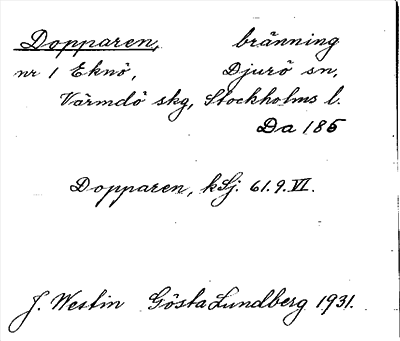 Dopparen, bränning
nr 1 Eknö, Djurö sn,
Värmdö skg, Stockholms l.
Da 185
Dopparen, kSj. 61.9.VI.
J. Westin Gösta Lundberg 1931.